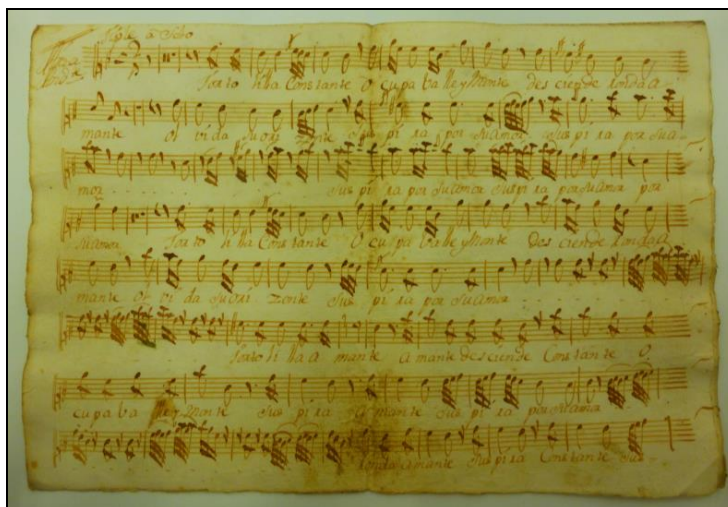 Tiple a Solo
Tortohilla Constante O cupa balle y Monte desciende rondaa-
mante ol vida su ori zonte Sus pi ra por su Amor sus pi ra por su a-
mor Sus pi ra por su Amor sus pi ra por su Amor por
su Amor Tortohilla Constante O cupa balle y Monte des ciende rondaa
mante ol vi da su ori zonte Sus pi ra por su Amor
Tortohilla a mante a mante desciende Constante O
cupa ba lle y Monte Sus pi ra a mante sus pi ra por su Amor
ronda Amante Sus pira Constante sus-